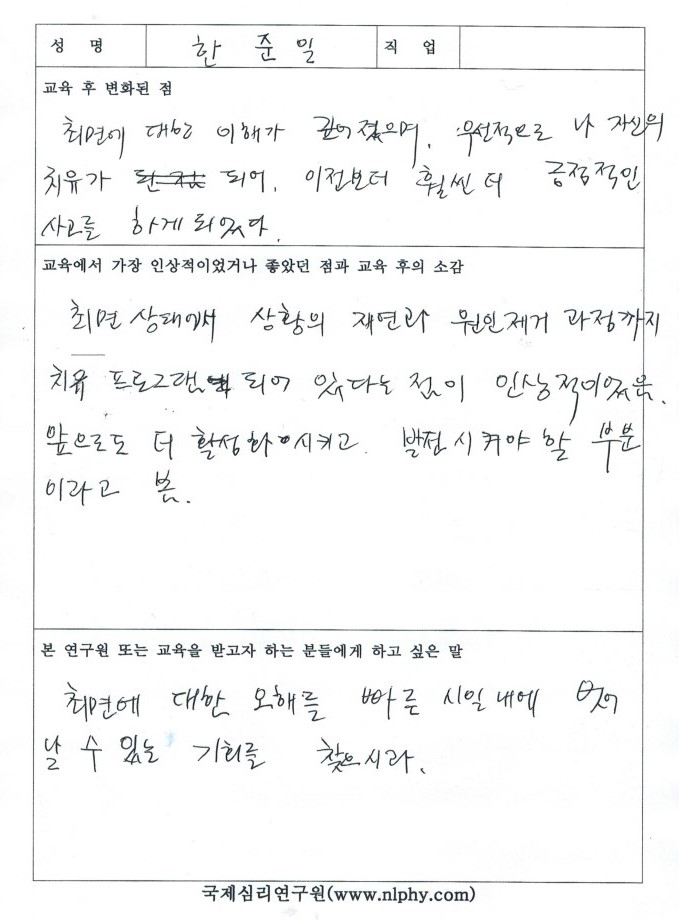 성 명 한 준 일 직 업
교육 후 변화된 점
최면에 대한 이해가 깊어졌으며, 우선적으로 나 자신의
치유가 되어, 이전보다 훨씬 더 긍정적인
사고를 하게 되었다.
교육에서 가장 인상적이었거나 좋았던 점과 교육 후의 소감
최면 상태에서 상황의 재연과 원인제거 과정까지
치유 프로그램 되어 있다는 점이 인상적이었음.
앞으로도 더 활성화시키고 발전시켜야 할 부분
이라고 봄.
본 연구원 또는 교육을 받고자 하는 분들에게 하고 싶은 말
최면에 대한 오해를 빠른 시일내에 벗어
날 수 있는 기회를 찾으시라.
국제심리연구원(www.nlphy.com)